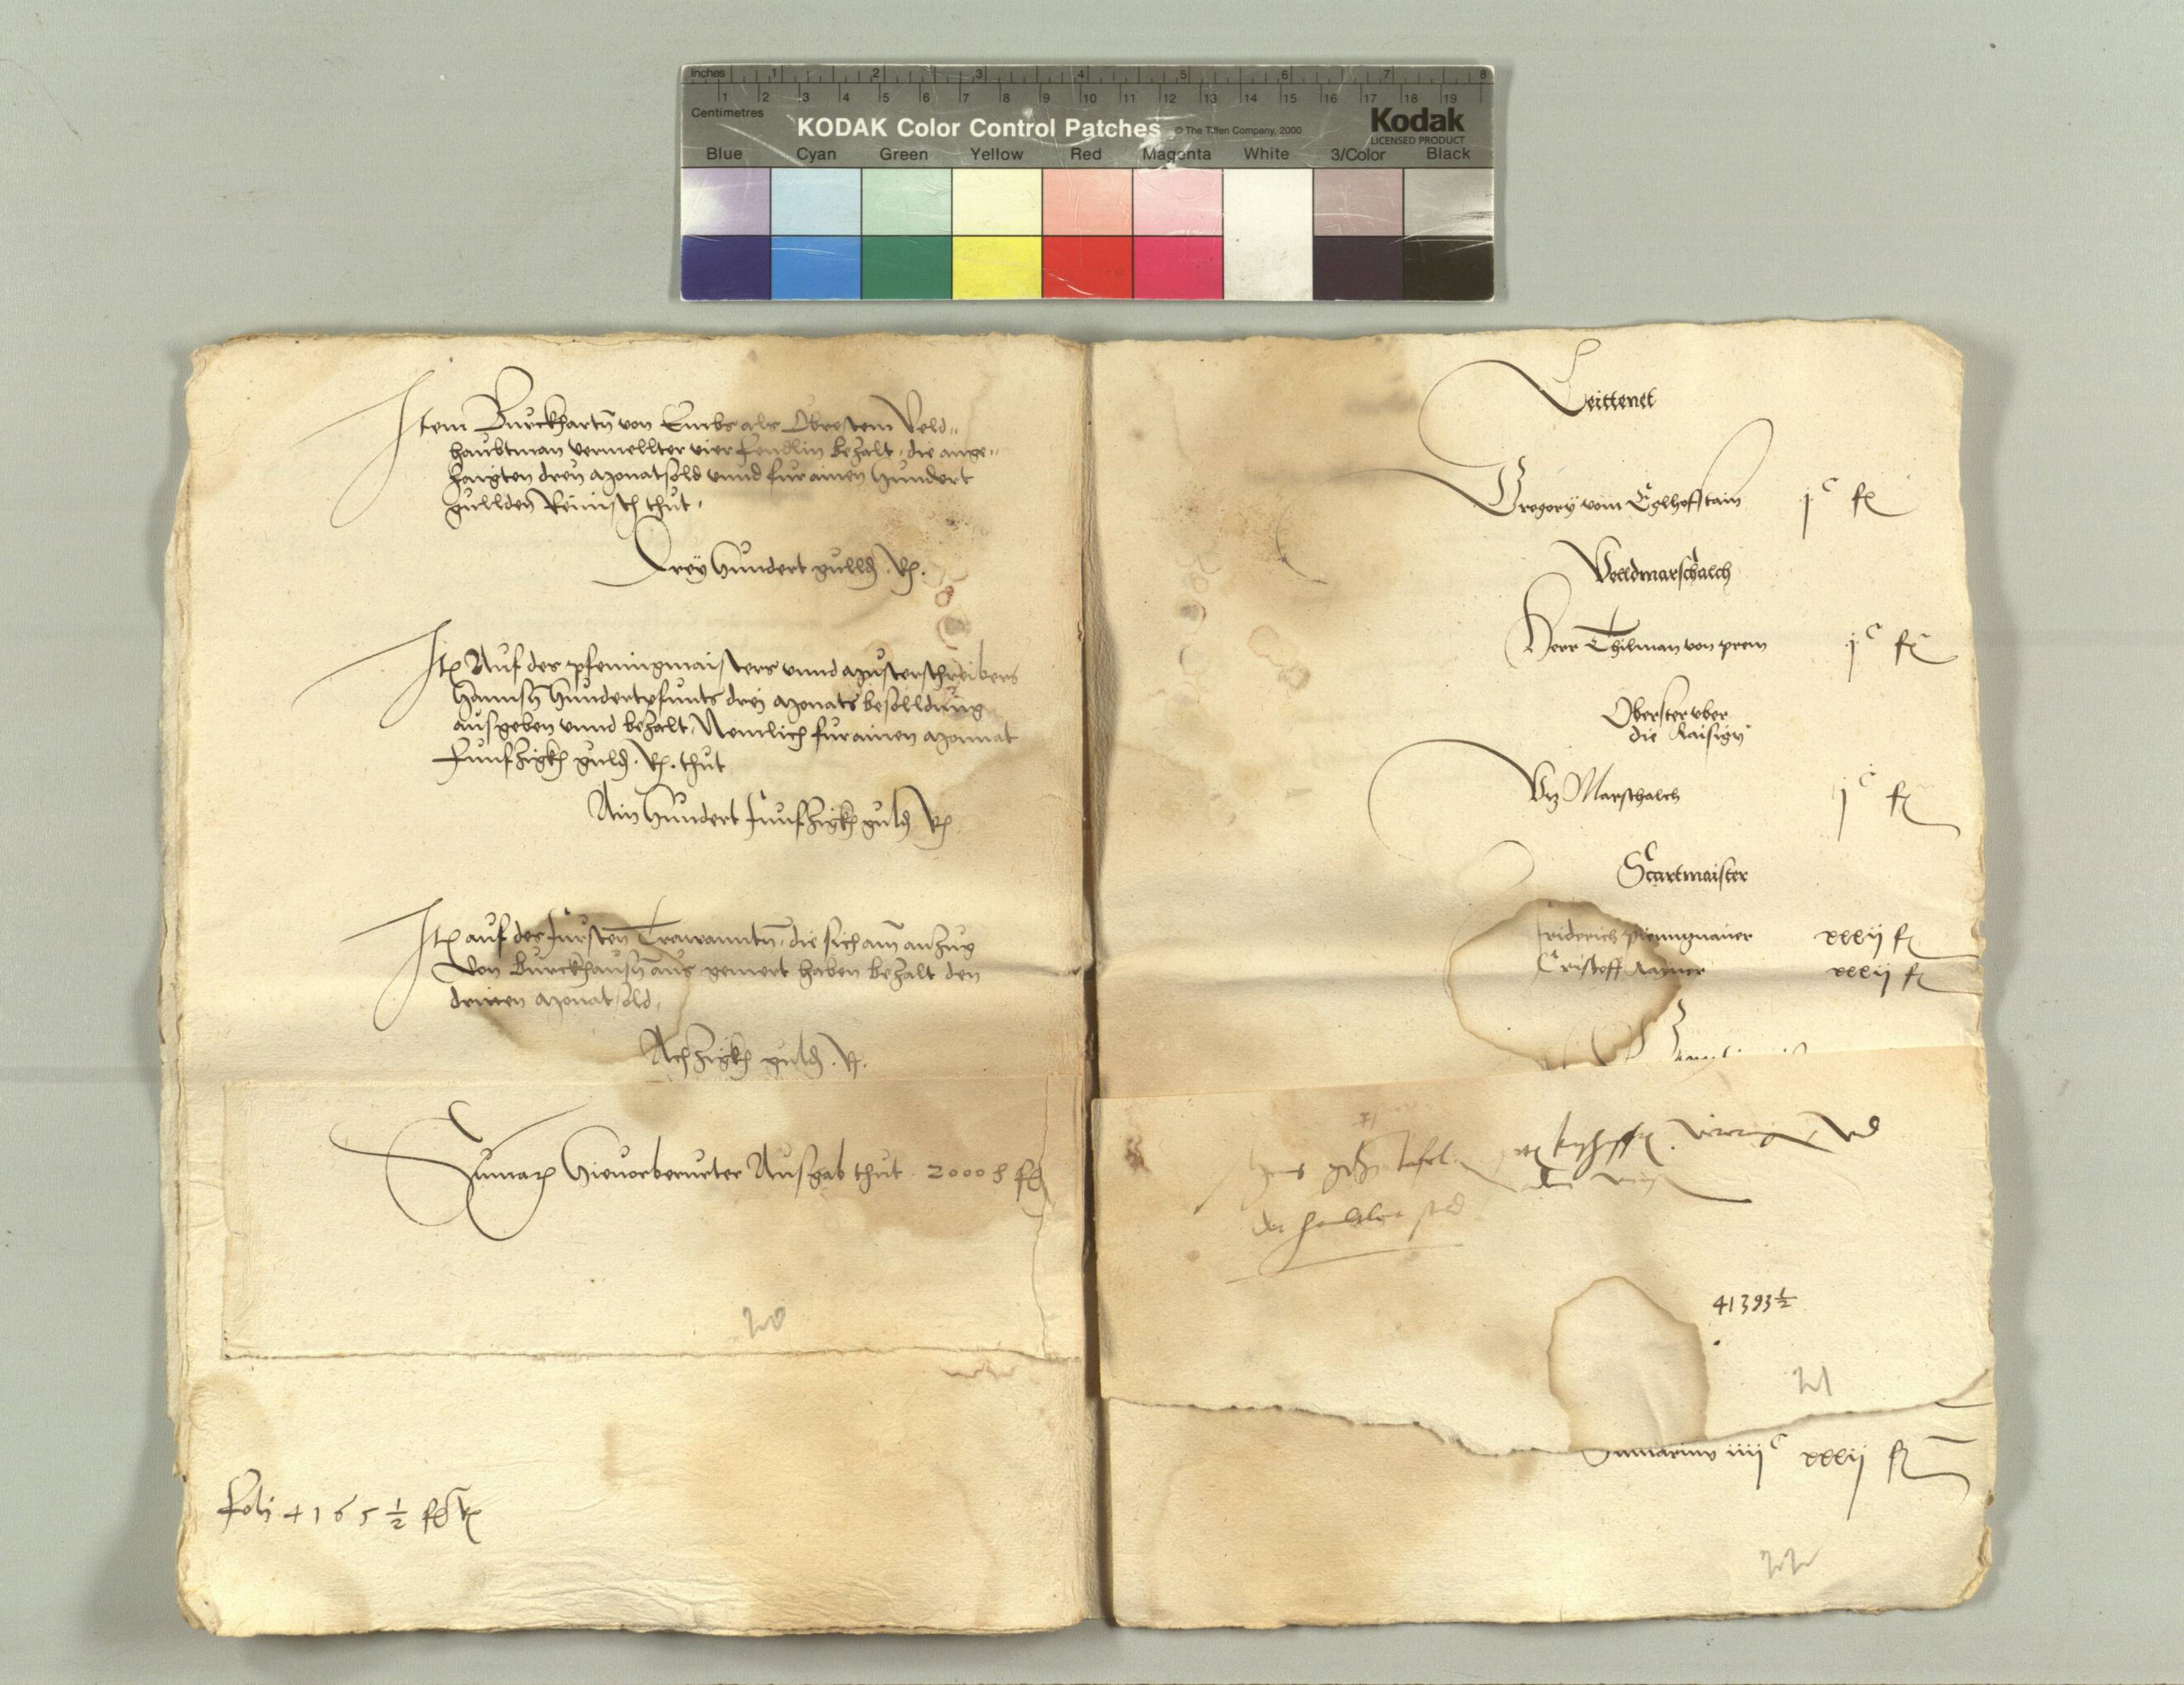 Inches 1 2 3 4 5 6 7 8
1 2 3 4 5 6 7 8 9 10 11 12 13 14 15 16 17 18 19
Centimetres
KODAK Color Control Patches © The Tiffen Company, 2000 Kodak
LICENSED PRODUCT
Blue Cyan Green Yellow Red Magenta White 3/Color Black
Item Burckhartn von Embs als Obrestem Veld„
haubtman vermellter vier Fendlin bezalt, die ange„
zaigten drey Monatsold unnd fur ainen hundert
gullden Reinisch thut,
Drey hundert gulld. R.
It Auf des pfeningmaisters unnd Musterschreibers
Hannsn Hundertpfunts drey Monats besolldung
ausgeben unnd bezalt, Nemlich fur ainen Monnat
Funfzigkh guld. R. thut
Ain hundert funfzigkh guld R
It auf des fursten Trawanntn, die sich am anzug
von Burckhausn aus gemert haben bezalt den
dritten Monatsold,
Achzigkh guld. R.
Sumar hievorberurter Ausgab thut 20008 fl
20
41651/2 fl R
Leittenet
Gregory vom Eglhofstain jc fl
Velldmarschalch
Herr Thilman von prem jc fl
Oberster uber
die Raisign
Viz Marschalch jc fl
Quartmaister
Friderich pfenningmaier xxxij fl
Cristoff Rainer xxxij fl
41393 1/2
21
Sumarum iiijc xxxij fl
22